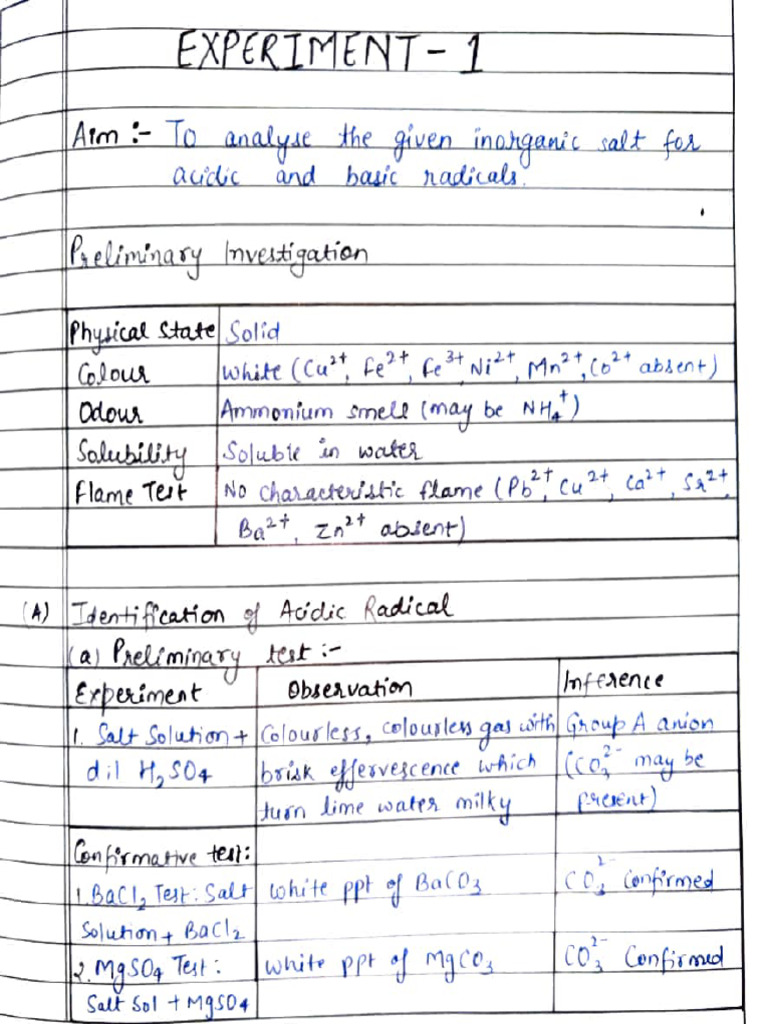 EXPERIMENT - 1
Aim :- To analyse the given inorganic salt for
acidic and basic radicals.
Preliminary Investigation
Physical State Solid
Colour White (Cu²⁺, Fe²⁺, Fe³⁺, Ni²⁺, Mn²⁺, Co²⁺ absent)
Odour Ammonium smell (may be NH₄⁺)
Solubility Soluble in water
Flame Test No characteristic flame (Pb²⁺, Cu²⁺, Ca²⁺, Sr²⁺,
Ba²⁺, Zn²⁺ absent)
(A) Identification of Acidic Radical
(a) Preliminary test :-
Experiment Observation Inference
1. Salt Solution + Colourless, colourless gas with Group A anion
dil H₂SO₄ brisk effervescence which (CO₃²⁻ may be
turn lime water milky present)
Confirmative test:
1. BaCl₂ Test: Salt white ppt of BaCO₃ CO₃²⁻ Confirmed
Solution + BaCl₂
2. MgSO₄ Test: white ppt of MgCO₃ CO₃²⁻ Confirmed
Salt Sol + MgSO₄